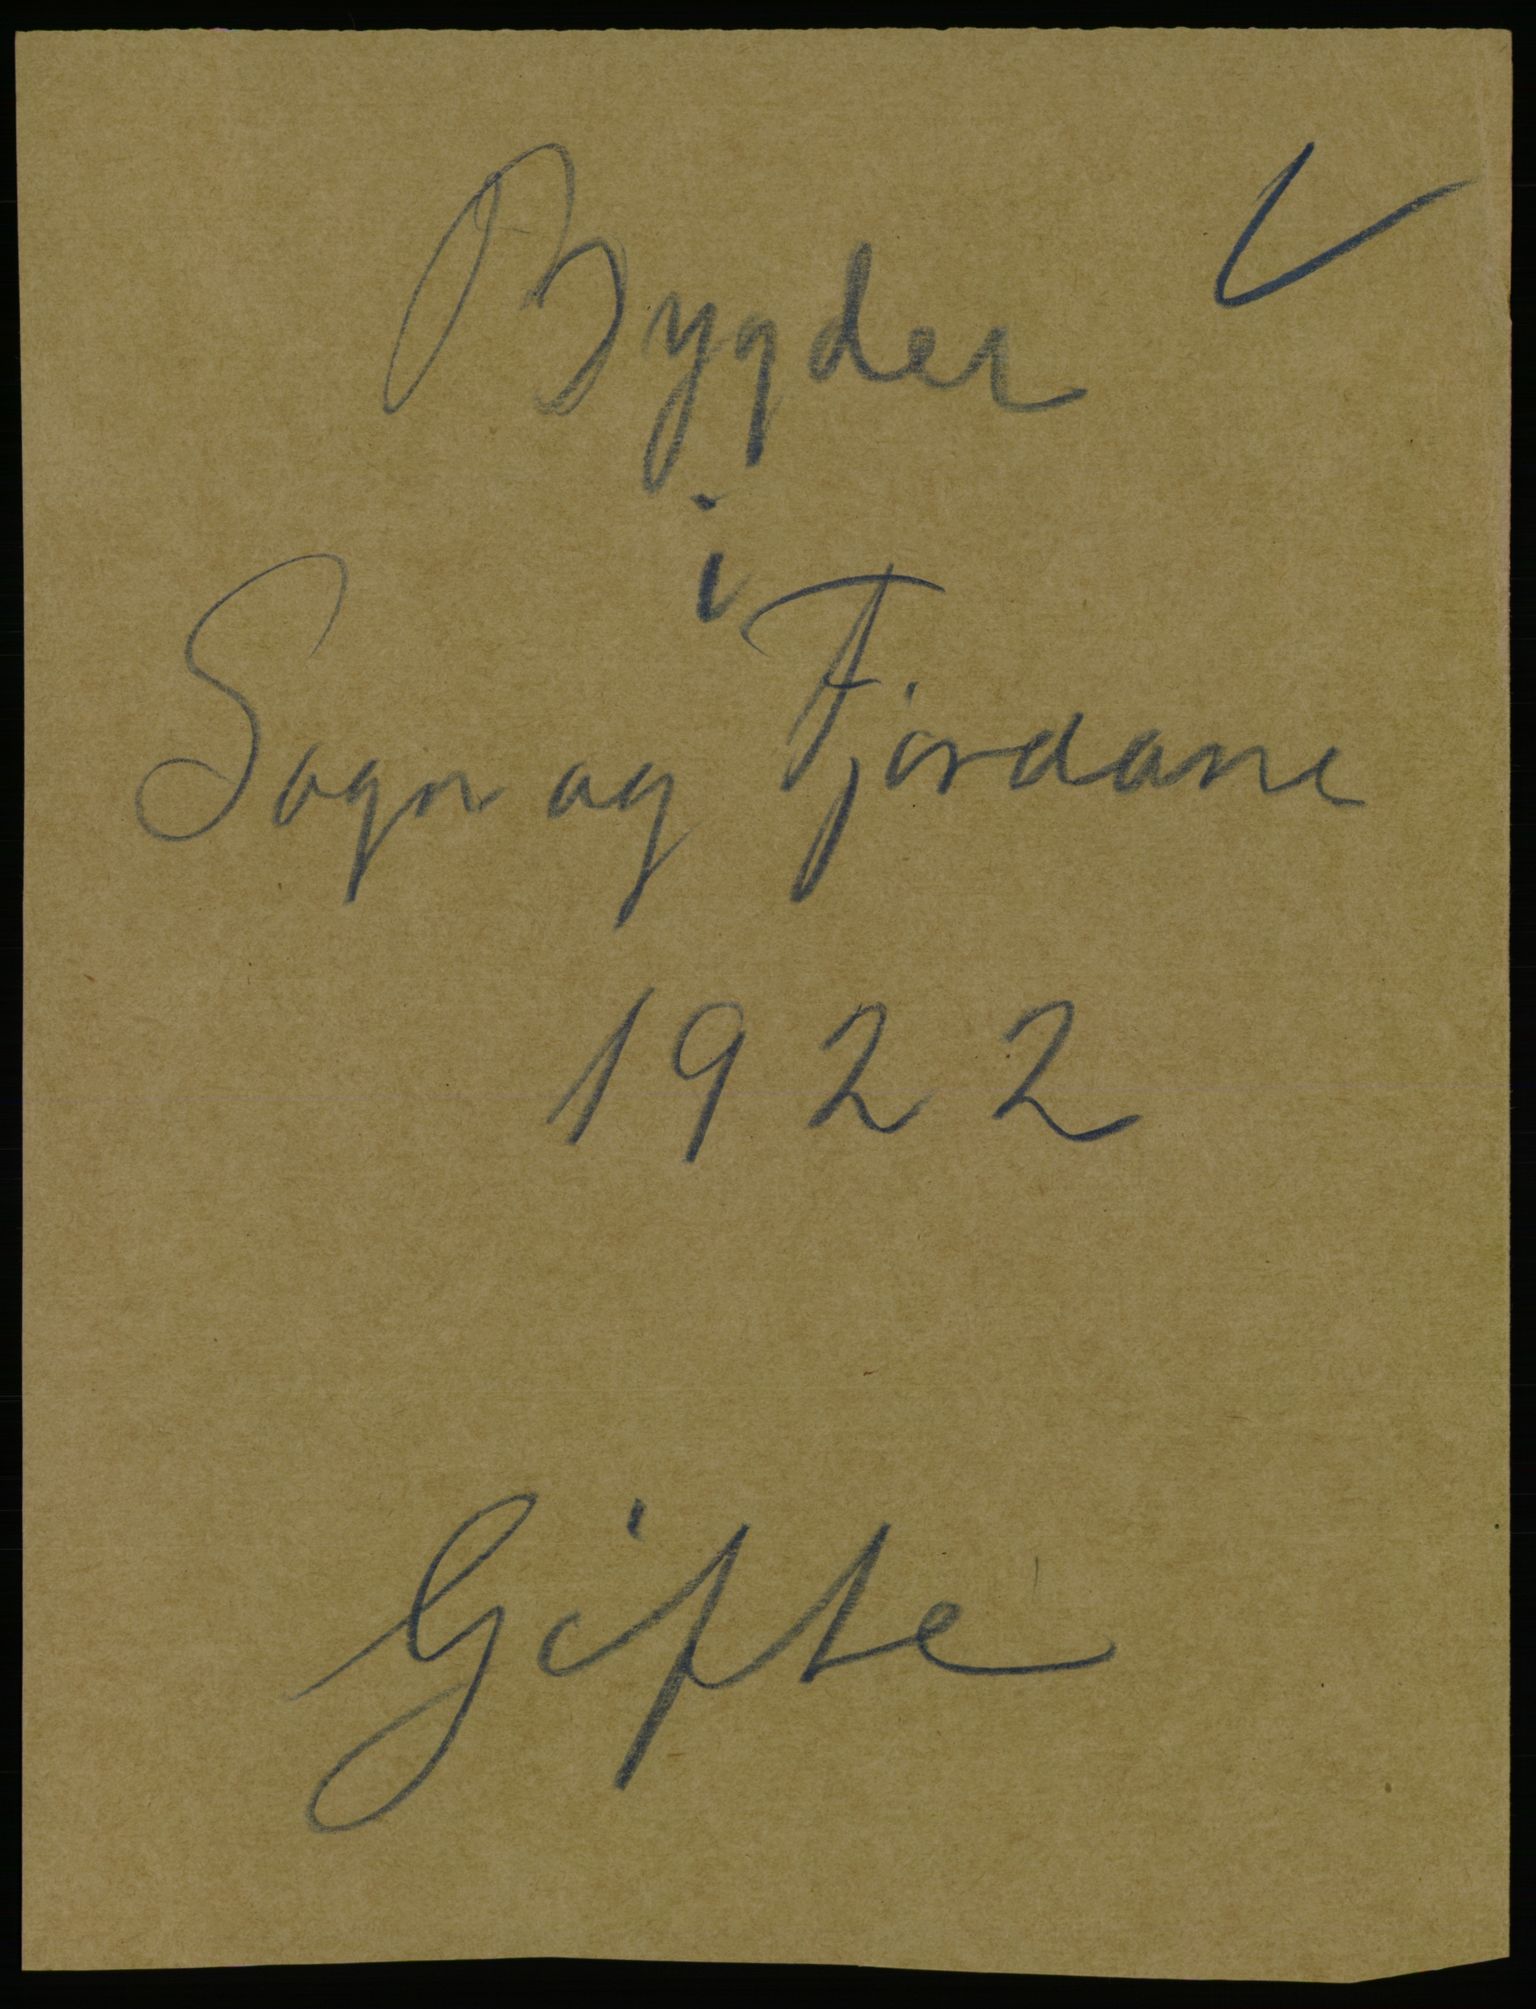 Bygder
i
Sogn og Fjordane
1922
Gifte